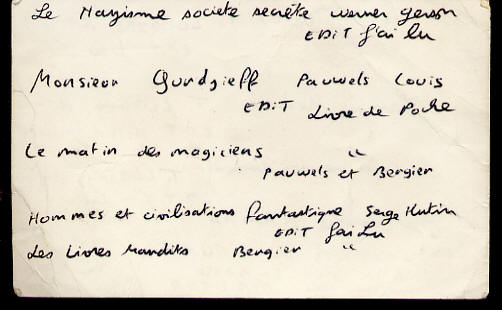 Le Nazisme societe secrète Werner Gerson
EDIT J'ai lu
Monsieur Gurdgieff Pauwels Louis
EDIT Livre de Poche
Le matin des magiciens "
Pauwels et Bergier
Hommes et civilisations fantastique Serge Hutin
EDIT J'ai Lu
Les Livres Maudits Bergier "